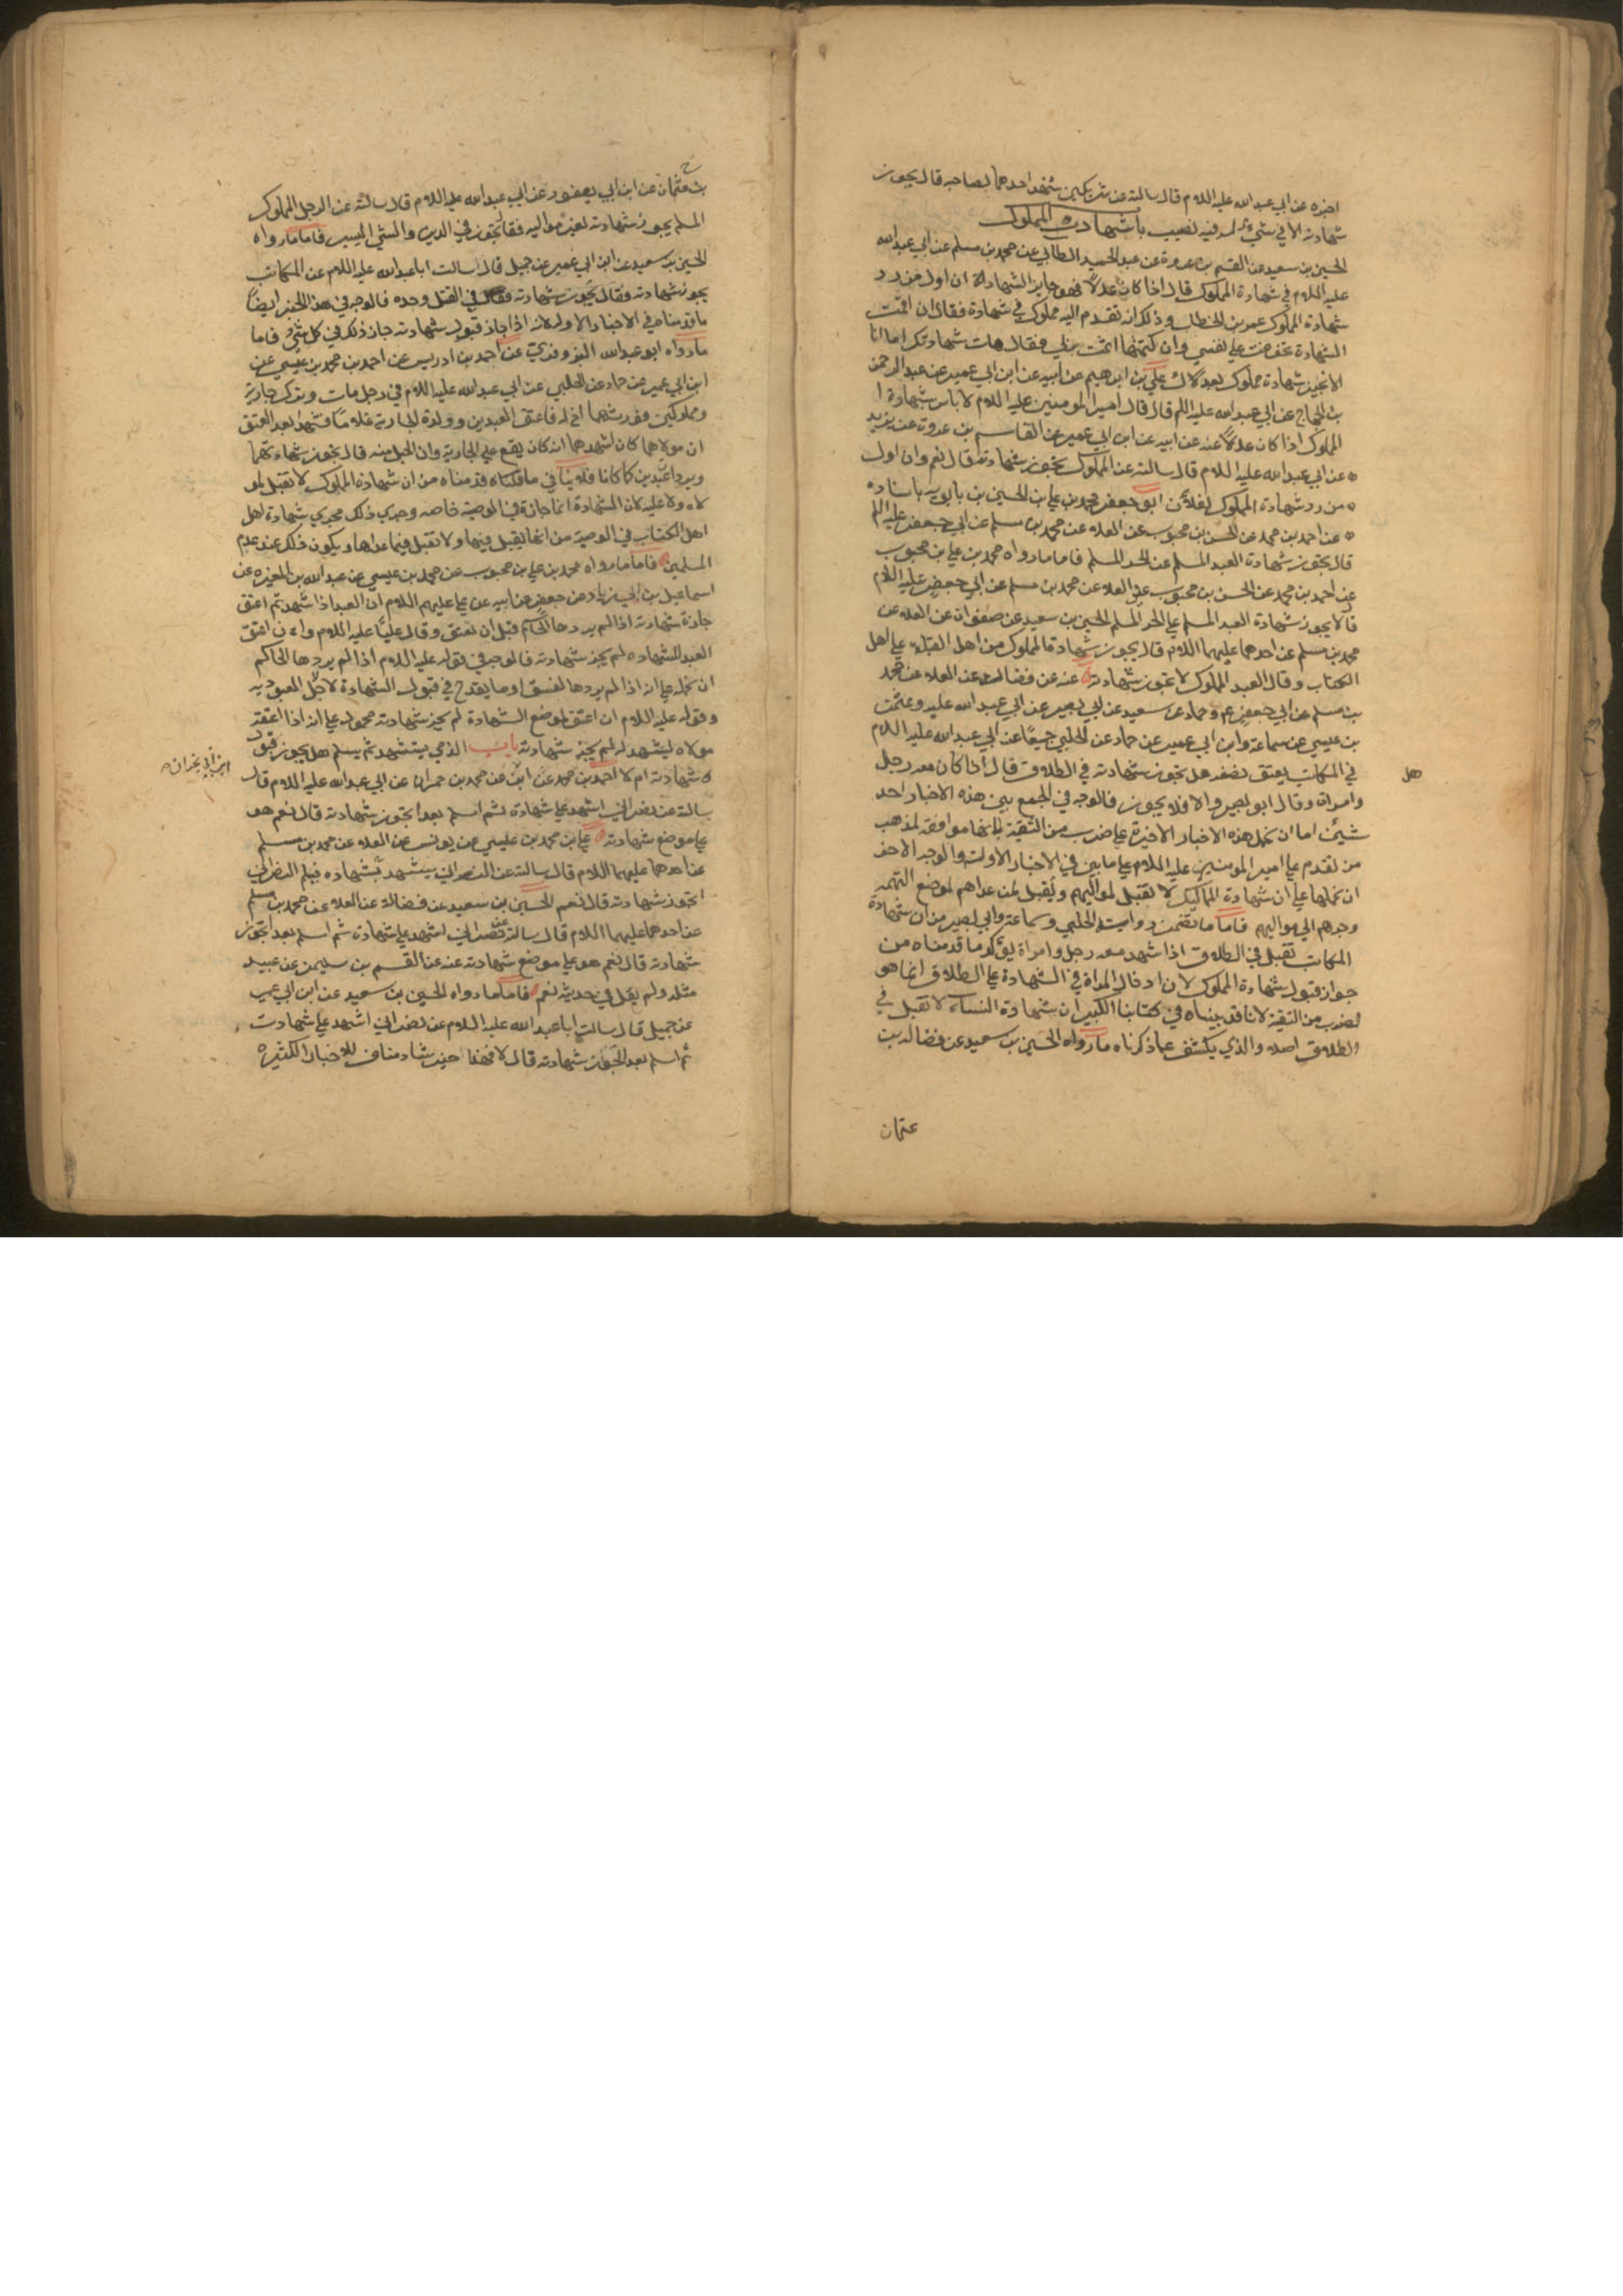 اخبره عن ابي عبد الله عليه السلام قال سالته عن شريكين شهد احدهما لصاحبه قال يجوز
شهادته الا في شيء له فيه نصيب باب شهادت المملوك
الحسين بن سعيد عن القسم بن عروة عن عبد الحميد الطائي عن محمد بن مسلم عن ابي عبد الله
عليه السلام في شهادة المملوك قال اذا كان عدلا فهو جايز الشهادة ان اول من رد
شهادة المملوك عمر بن الخطاب وذلك انه تقدم اليه مملوك في شهادة فقال ان اقمت
الشهادة تخوفت على نفسي وان كتمتها اثمت بربي فقال هات شهادتك اما انا
لا نجيز شهادة مملوك بعدك علي بن ابرهيم عن ابيه عن ابن ابي عمير عن عبد الرحمن
بن الحجاج عن ابي عبد الله عليه السلم قال قال امير المومنين عليه السلام لا باس بشهادة ا
المملوك اذا كان عدلا عنه عن ابيه عن ابن ابي عمير عن القاسم بن عروة عن بريد
عن ابي عبد الله عليه السلام قال سالته عن المملوك تجوز شهادته قال نعم وان اول
من رد شهادة المملوك لفلان ابو جعفر محمد بن علي بن الحسين بن بابويه باسناده
عن احمد بن محمد عن الحسن بن محبوب عن العلا عن محمد بن مسلم عن ابي جعفر عليه السلم
قال تجوز شهادة العبد المسلم عن الحر المسلم فاما ما رواه محمد بن علي بن محبوب
عن احمد بن محمد عن الحسن بن محبوب عن العلا عن محمد بن مسلم عن ابي جعفر عليه السلام
قال لا يجوز شهادة العبد المسلم على الحر المسلم الحسين بن سعيد عن صفوان عن العلا عن
محمد بن مسلم عن احدهما عليهما السلام قال يجوز شهادة المملوك من اهل القبلة على اهل
الكتاب وقال العبد المملوك لا تجوز شهادته عنه عن فضالة عن العلا عن محمد
بن مسلم عن ابي جعفر عم وحماد عن سعيد عن ابي بصير عن ابي عبد الله عليه وعثمن
بن عيسى عن سماعة وابن ابي عمير عن حماد عن الحلبي جميعا عن ابي عبد الله عليه السلام
هل
في المكاتب يعتق نصفه هل تجوز شهادته في الطلاق قال اذا كان معه رجل
وامراة وقال ابو بصير والا فلا يجوز فالوجه في الجمع بين هذه الاخبار احد
شيئين اما ان نحمل هذه الاخبار الاخيرة على ضرب من التقية لانها موافقة لمذهب
من تقدم على امير المومنين عليه السلام على ما بين في الاخبار الاولة والوجه الاخر
ان نحملها على ان شهادة المماليك لا تقبل لمواليهم وتقبل لمن عداهم لموضع التهمة
وجرهم الى مواليهم فاما ما تضمن رواية الحلبي وسماعة وابي بصير من ان شهادة
المكاتب تقبل في الطلاق اذا شهد معه رجل وامراة يؤكد ما قدمناه من
جواز قبول شهادة المملوك لان ادخال المراة في الشهادة على الطلاق انما هو
لضرب من التقية لانا قد بيناه في كتابنا الكبير ان شهادة النساء لا تقبل في
الطلاق اصلا والذي يكشف عما ذكرناه ما رواه الحسين بن سعيد عن فضالة بن
عثمان
بن عثمان عن ابن ابي يعفور عن ابي عبد الله عليه السلام قال سالته عن الرجل المملوك
المسلم يجوز شهادته لغير مواليه فقال تجوز في الدين والشي اليسير فاما ما رواه
الحسين بن سعيد عن ابن ابي عمير عن جميل قال سالت ابا عبد الله عليه السلام عن المكاتب
يجوز شهادته وفقال يجوز شهادته فقال في القتل وحده فالوجه في هذا الخبر ايضا
ما قدمناه في الاخبار الاوله لانه اذا جاز قبول شهادته جاز ذلك في كل شيء فاما
ما رواه ابو عبد الله البزوفري عن احمد بن ادريس عن احمد بن محمد بن عيسى عن
ابن ابي عمير عن حماد عن الحلبي عن ابي عبد الله عليه السلام في رجل مات وترك جارية
ومملوكين فورثهما اخ له فاعتق العبدين وولدة الجارية غلاما فشهدا بعد العتق
ان مولاهما كان اشهدهما انه كان يقع على الجارية وان الحبل منه قال تجوز شهادتهما
ويردا عبدين كما كانا فلا ينافي ما قلناه قدمناه من ان شهادة المملوك لا تقبل لمو
لاه ولا عليه لان الشهادة انما جازة في الوصية خاصة وجري ذلك مجرى شهادة اهل
اهل الكتاب في الوصية من انها يقبل فيها ولا تقبل فيما عداها ويكون ذلك عند عدم
المسلمين فاما ما رواه محمد بن علي بن محبوب عن محمد بن عيسى عن عبد الله بن المغيره عن
اسماعيل بن ابي زياد عن جعفر عن ابيه عن علي عليهم السلام ان العبد اذا شهد ثم اعتق
جازة شهادته اذا لم يردها الحاكم قبل ان يعتق وقال علي عليه السلام وان اعتق
العبد للشهاده لم يجز شهادته فالوجه في قوله عليه السلام اذا لم يردها الحاكم
ان نحمله على انه اذا لم يردها لفسق او ما يقدح في قبول الشهادة لاجل العبودية
وقوله عليه السلام ان اعتق لموضع الشهادة لم يجز شهادته محمول على انه اذا اعتقه
مولاه ليشهد له لم يجز شهادته باب الذمي يستشهد ثم يسلم هل يجوز قبول
شهادته ام لا احمد بن محمد عن ابن عن محمد بن حمران عن ابي عبد الله عليه السلام قال
ابن ابي نجران
سالته عن نصراني اشهد على شهادة ثم اسلم بعد اتجوز شهادته قال نعم هو
على موضع شهادته علي بن محمد بن عيسى عن يونس عن العلا عن محمد بن مسلم
عن احدهما عليهما السلام قال سالته عن النصراني يستشهد بشهاده فيسلم النصراني
اتجوز شهادته قال نعم الحسين بن سعيد عن فضالة عن العلا عن محمد بن مسلم
عن احدهما عليهما السلام قال سالته عن نصراني اشهد على شهادة ثم اسلم بعد اتجوز
شهادته قال نعم هو على موضع شهادته عنه عن القسم بن سليمن عن عبيد
مثله ولم يقل في حديثه نعم فاما ما رواه الحسين بن سعيد عن ابن ابي عمير
عن جميل قال سالت ابا عبد الله عليه السلام عن نصراني اشهد على شهادت
ثم اسلم بعد اتجوز شهادته قال لا فهذا خبر شاد مناف للاخبار الكثيره